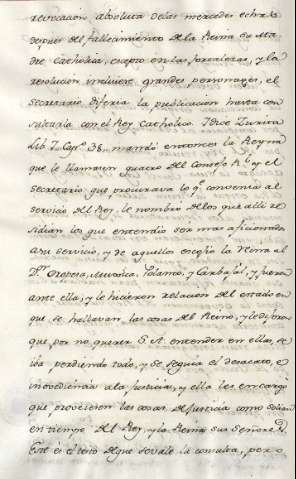 revocacion absoluta de las mercedes echas
despues del fallecimiento de la Reina su Ma
dre Catholica, excepto en las fortalezas, y la
resolucion inviviere grandes personages, el
secretario diferia la publicacion hasta con
sultarla con el Rey Catholico. Y dice Zurita
Lib. 7. Cap.º 38. mandó entonces la Reyna
que le llamasen quatro del Consejo R.l y el
Secretario que procurava lo q.e convenia al
servicio del Rey, le nombró de los que alli re
sidian los que entendio ser mas aficionados
a su servicio, y de aquellos escogio la Reina al
D.r Oropesa, Muxica, Polanco, y Carbajal, y fueron
ante ella, y le hicieron relacion del estado en
que se hallavan las cosas del Reino, y le dijeron
que por no querer S. A. entender en ellas, se
iba perdiendo todo, y se seguia el desacato, e
inovediencia a la Justicia, y ella les encargo
que proveiesen las cosas de Justicia como solian
en tiempo del Rey, y la Reina sus Señores.
Este es el texto de que se vale la consulta, pero